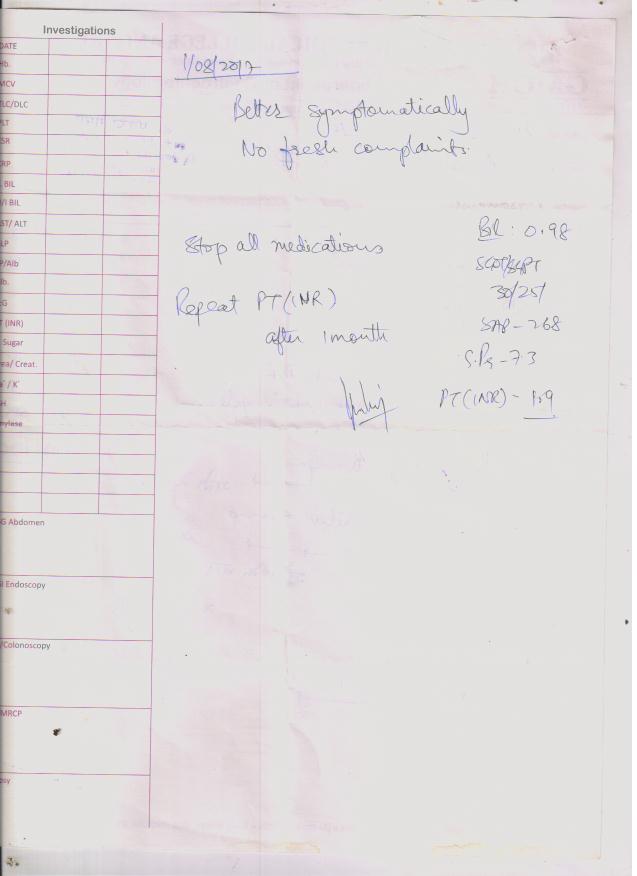 Investigations
DATE
Hb.
MCV
TLC/DLC
LT
SR
RP
. BIL
/I BIL
ST/ ALT
LP
P/Alb
lb.
G
T (INR)
Sugar
rea/ Creat.
/ K
H
mylase
G Abdomen
I Endoscopy
/Colonoscopy
MRCP
psy
1/08/2017
Better symptomatically
No fresh complaints.
Stop all medications
Repeat PT(INR)
after 1 month
Bil : 0.98
SGOT/SGPT
30/25/
SAP - 268
S.Ps - 7.3
PT(INR) - 1.9